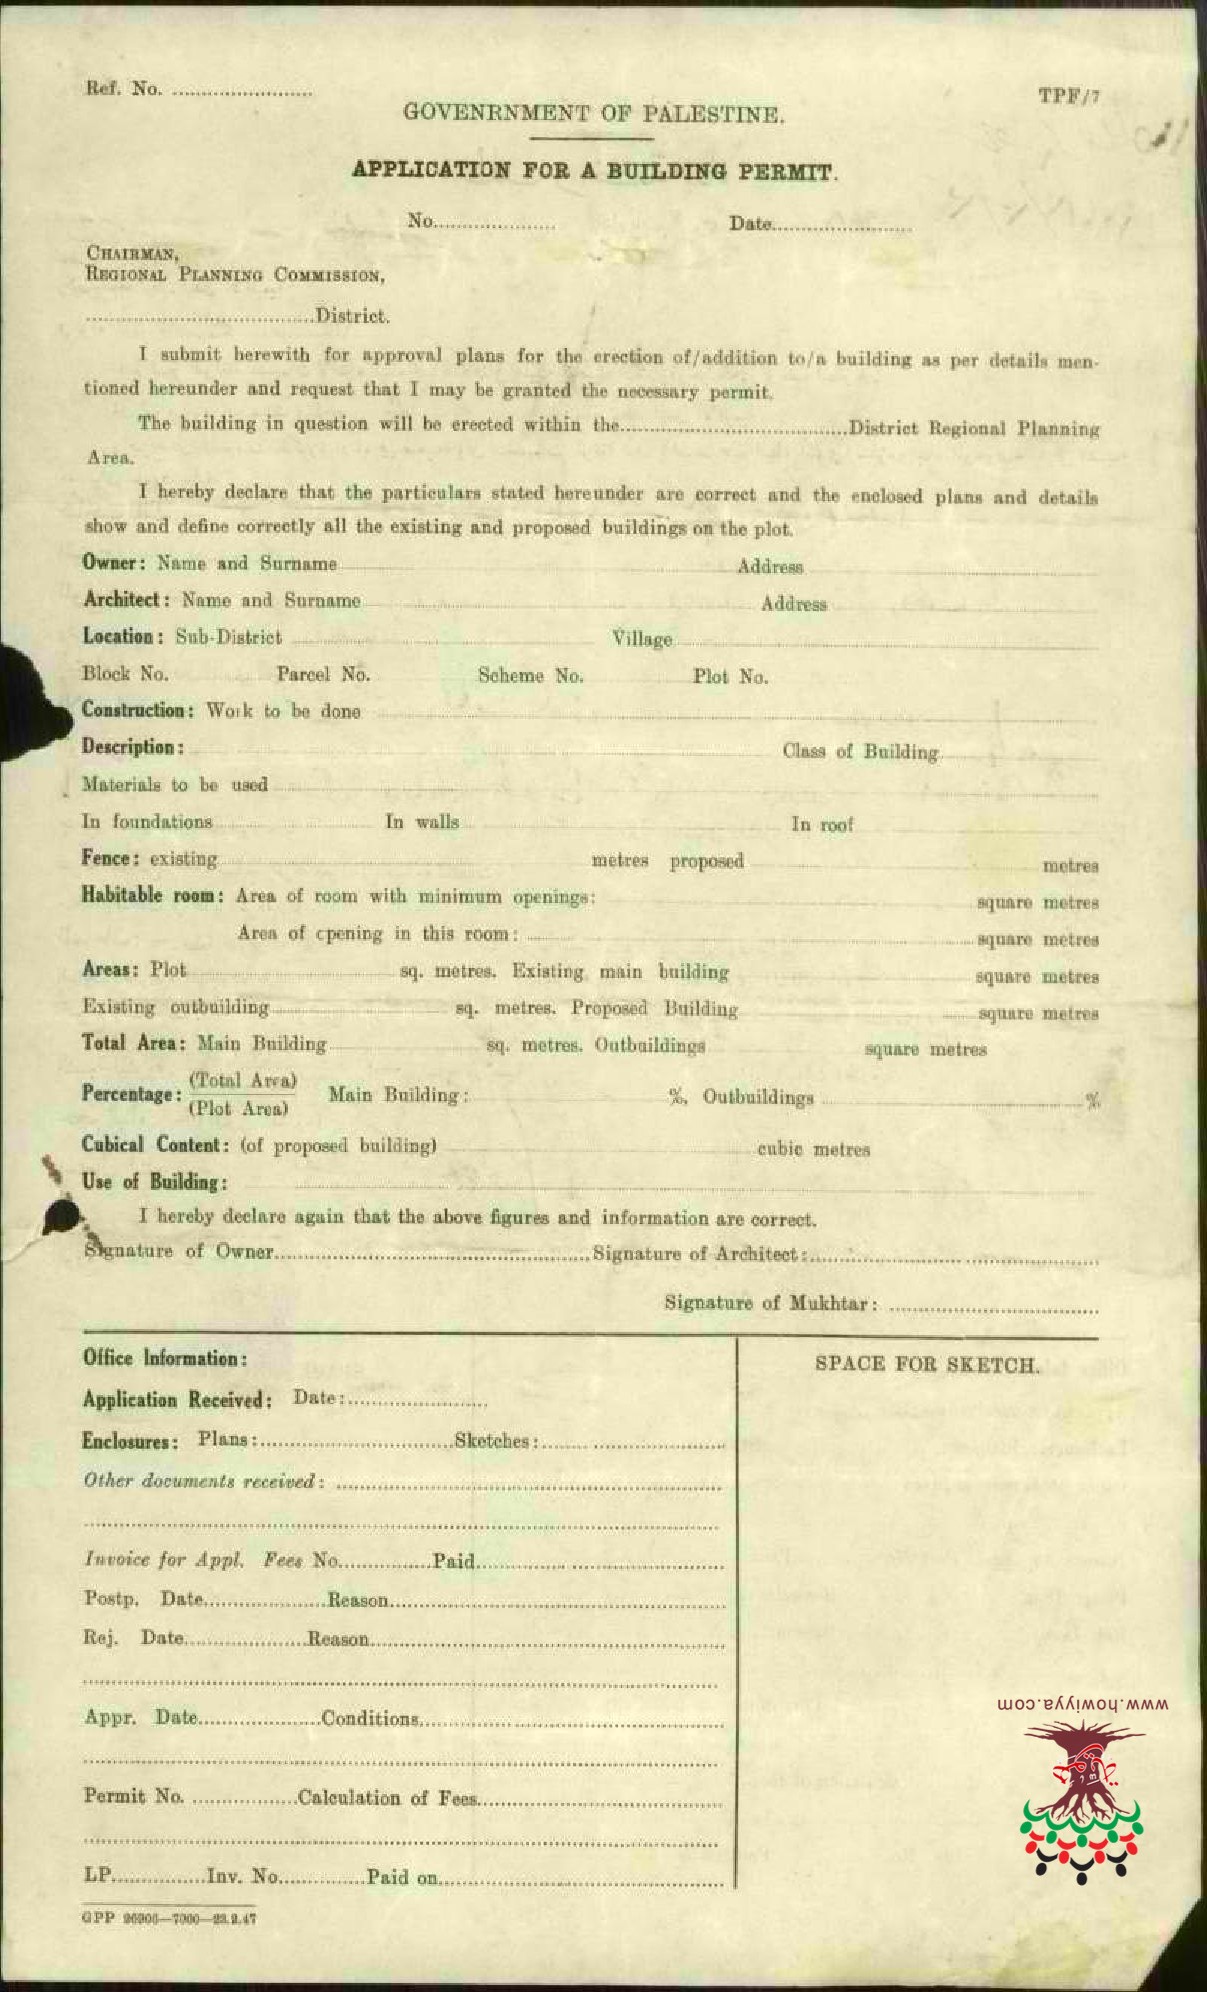 Ref. No. ........................
TPF/7
GOVENRNMENT OF PALESTINE.
APPLICATION FOR A BUILDING PERMIT.
No..................... Date........................
CHAIRMAN,
REGIONAL PLANNING COMMISSION,
........................................District.
I submit herewith for approval plans for the erection of/addition to/a building as per details men-
tioned hereunder and request that I may be granted the necessary permit.
The building in question will be erected within the........................................District Regional Planning
Area.
I hereby declare that the particulars stated hereunder are correct and the enclosed plans and details
show and define correctly all the existing and proposed buildings on the plot.
Owner: Name and Surname Address
Architect: Name and Surname Address
Location: Sub-District Village
Block No. Parcel No. Scheme No. Plot No.
Construction: Work to be done
Description: Class of Building
Materials to be used
In foundations In walls In roof
Fence: existing metres proposed metres
Habitable room: Area of room with minimum openings: square metres
Area of opening in this room: square metres
Areas: Plot sq. metres. Existing main building square metres
Existing outbuilding sq. metres. Proposed Building square metres
Total Area: Main Building sq. metres. Outbuildings square metres
Percentage: (Total Area) Main Building: %, Outbuildings %
(Plot Area)
Cubical Content: (of proposed building) cubic metres
Use of Building:
I hereby declare again that the above figures and information are correct.
Signature of Owner........................Signature of Architect:........................
Signature of Mukhtar: ........................
Office Information:
Application Received: Date:........................
Enclosures: Plans:........................Sketches:........................
Other documents received: ........................
Invoice for Appl. Fees No................Paid........................
Postp. Date.....................Reason........................
Rej. Date.....................Reason........................
Appr. Date.....................Conditions........................
Permit No. ..................Calculation of Fees........................
LP................Inv. No...............Paid on........................
SPACE FOR SKETCH.
www.howiyya.com
GPP